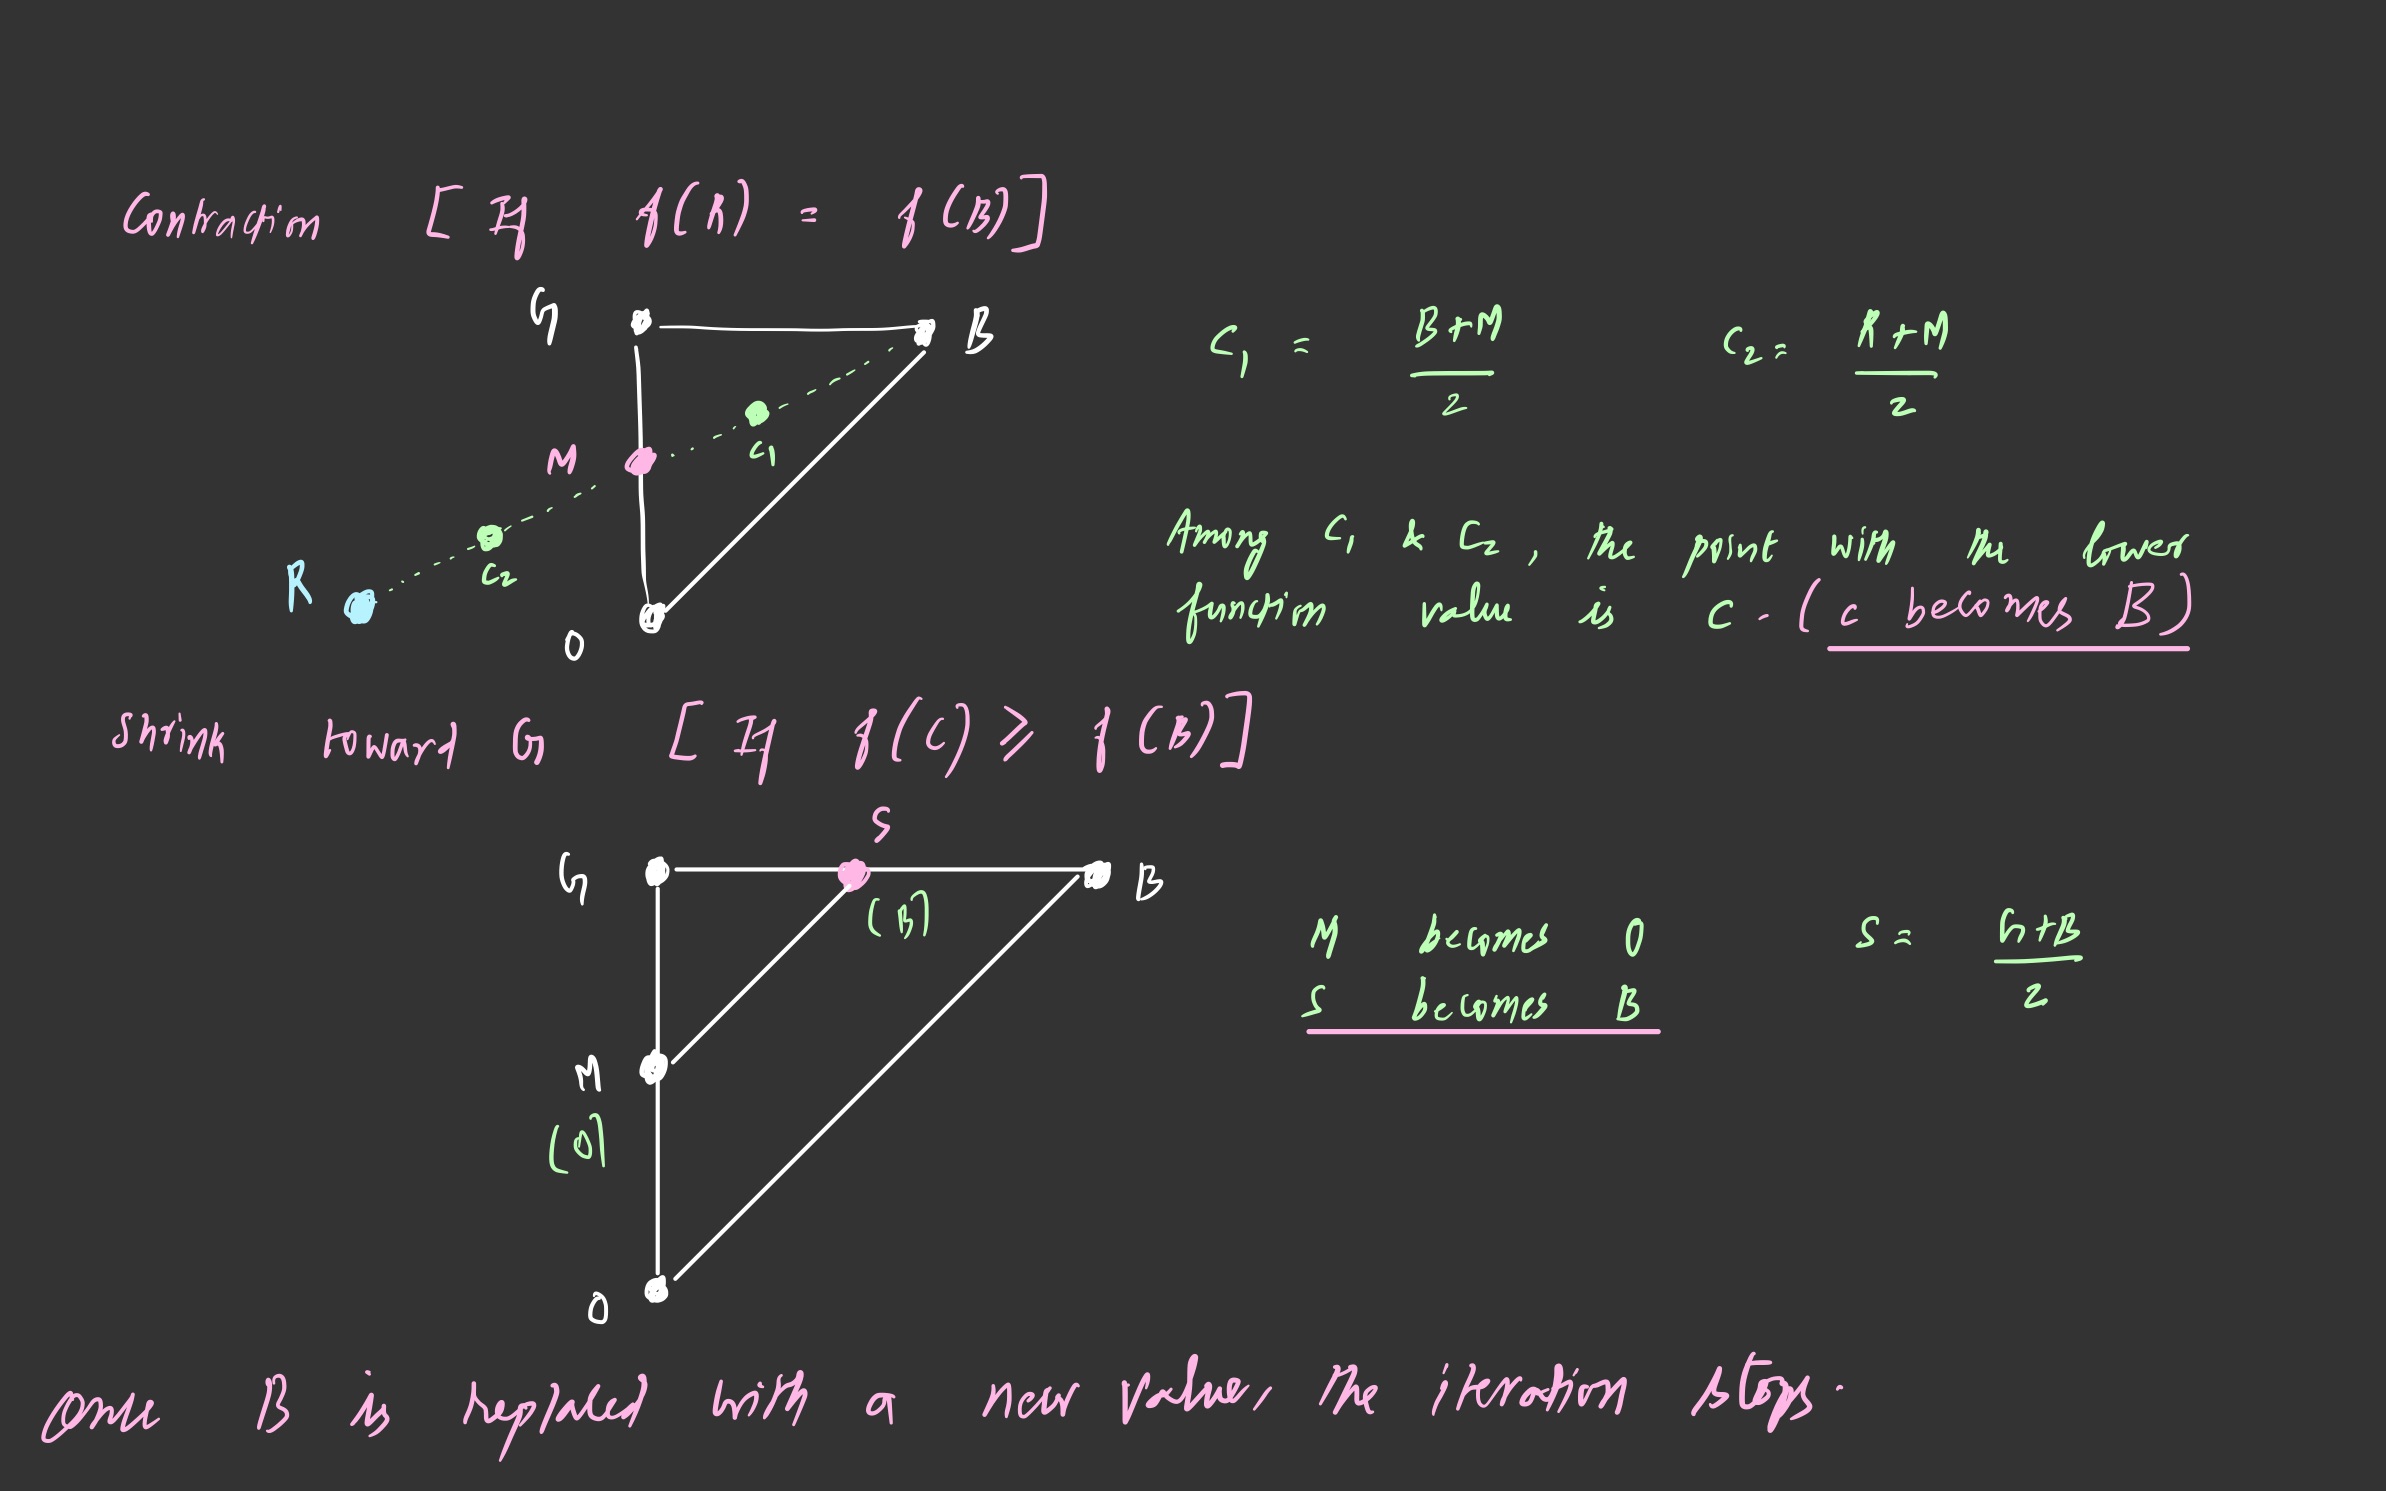 Contraction [If f(R) = f(B)]
G
B
C₁ = (B+M)/2
C₂ = (R+M)/2
C₁
M
C₂
R
O
Among C₁ & C₂, the point with the lower
function value is C. (C becomes B)
Shrink toward G [If f(C) ⩾ f(B)]
S
G
B
(B)
M becomes O
S = (G+B)/2
S becomes B
M
(O)
O
Once B is replaced with a new value, the iteration stops.